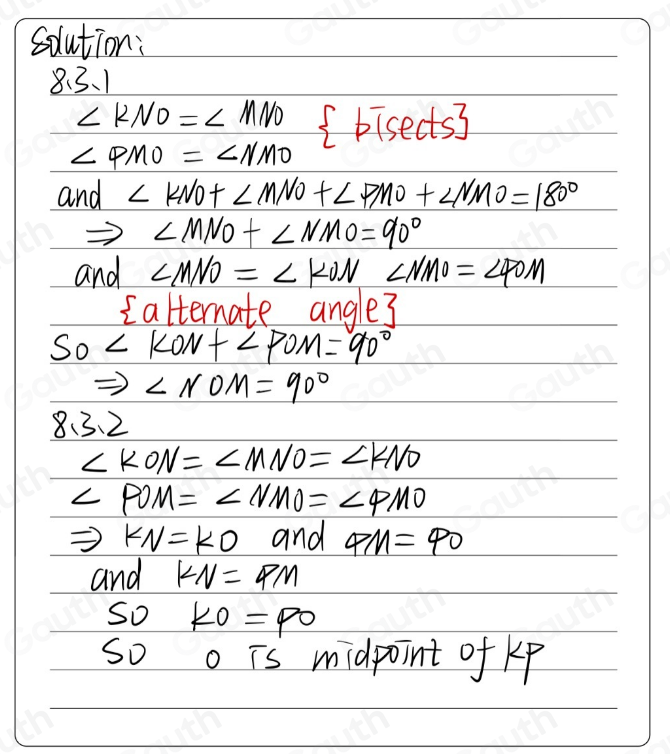 Solution:
8.3.1
∠KNO=∠MNO {bisects}
∠PMO=∠NMO
and ∠KNO+∠MNO+∠PMO+∠NMO=180°
⇒ ∠MNO+∠NMO=90°
and ∠MNO=∠KON ∠NMO=∠POM
{alternate angle}
So ∠KON+∠POM=90°
⇒ ∠NOM=90°
8.3.2
∠KON=∠MNO=∠KNO
∠POM=∠NMO=∠PMO
⇒ KN=KO and PM=PO
and KN=PM
SO KO=PO
SO O is midpoint of KP